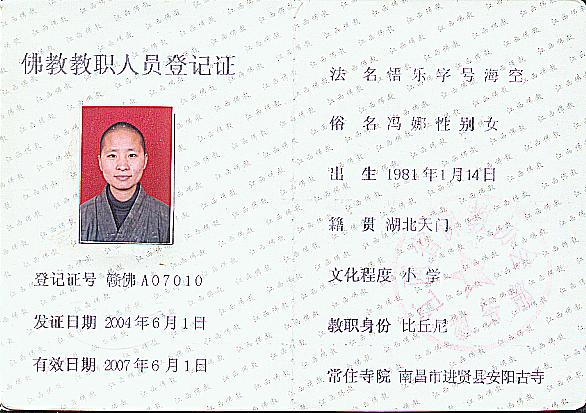 佛教教职人员登记证
登记证号 赣佛A07010
发证日期 2004年6月1日
有效日期 2007年6月1日
法名 悟乐 字号 海空
俗名 冯娜 性别 女
出生 1981年1月14日
籍贯 湖北天门
文化程度 小学
教职身份 比丘尼
常住寺院 南昌市进贤县安阳古寺